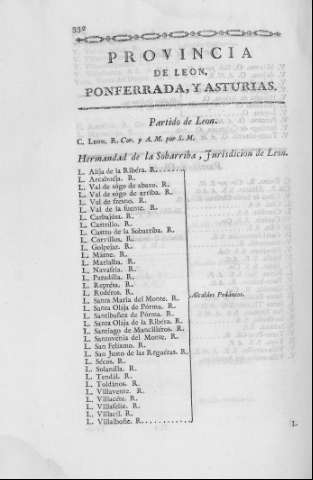 330
PROVINCIA
DE LEON,
PONFERRADA, Y ASTURIAS.
Partido de Leon.
C. Leon. R. Cor. y A. M. por S. M.
Hermandad de la Sobarriba, Jurisdicion de Leon.
L. Alija de la Ribéra. R.
L. Arcahueja. R.
L. Val de sogo de abaxo. R.
L. Val de sogo de arriba. R.
L. Val de fresno. R.
L. Val de la fuente. R.
L. Carbajosa. R.
L. Castrillo. R.
L. de la Sobarriba. R.
L. Corvillos. R.
L. Golpejar. R.
L. Máme. R.
L. Marialba. R.
L. Navafria. R.
L. Paradilla. R.
L. Represa. R.
L. Rodéros. R.
L. Santa María del Monte. R.
L. Santa Olaja de Pórma. R.
L. Santibañez de Pórma. R.
L. Santa Olaja de la Ribéra. R.
L. Santiago de R.
L. Santovenia del Monte. R.
L. San Felismo. R.
L. San Justo de las Regueras. R.
L. Sécos. R.
L. Solanilla. R.
L. Tendál. R.
L. Toldános. R.
L. Villavente. R.
L. Villacéte. R.
L. Villafelíz. R.
L. Villacil. R.
L. Villalboñe. R.
Alcaldes Pedáneos.
L.